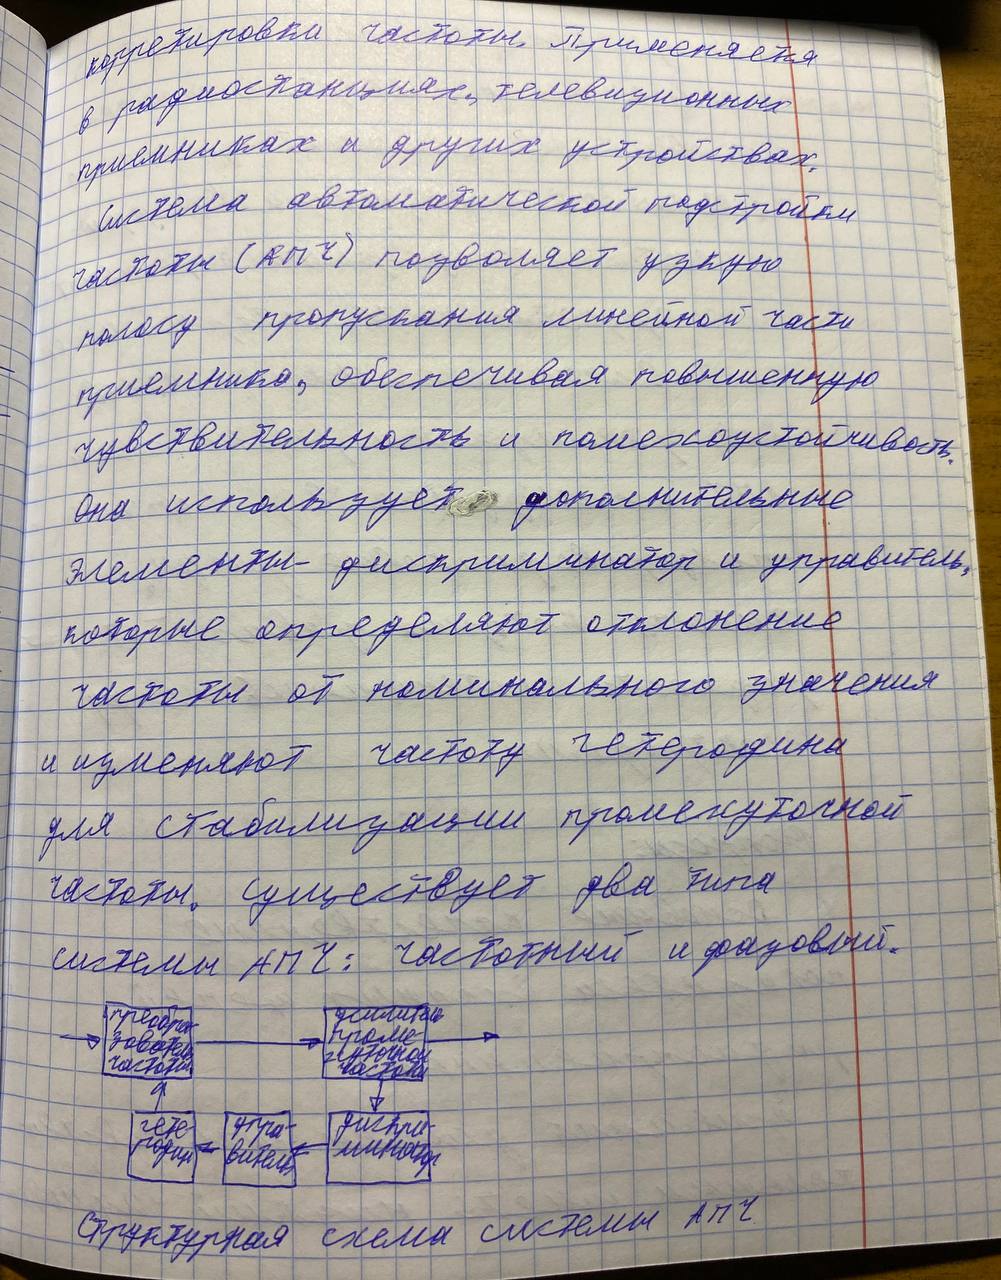 корретировки частоты. Применяется
в радиостанциях, телевизионных
приемниках и других устройствах.
Система автоматической подстройки
частоты (АПЧ) позволяет узкую
полосу пропускания линейной части
приемника, обеспечивая повышенную
чувствительность и помехоустойчивость.
Она использует дополнительные
элементы- дискриминатор и управитель,
которые определяют отклонение
частоты от номинального значения
и изменяют частоту гетеродина
для стабилизации промежуточной
частоты. Существует два типа
системы АПЧ: частотный и фазовый.
преобра-
зователь
частоты
усилитель
проме
жуточной
частоты
гете
родин
упра-
витель
дискри-
минатор
Структурная схема системы АПЧ